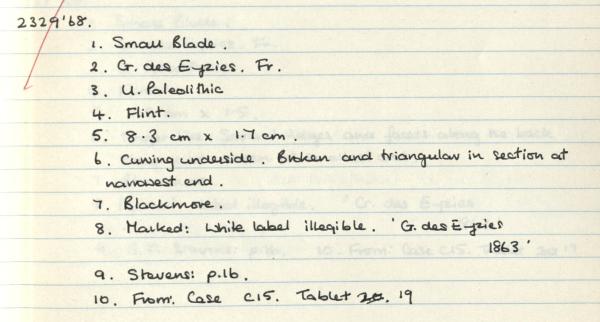 2329'68.
1. Small Blade.
2. G. des Eyzies. Fr.
3. U. Paleolithic
4. Flint.
5. 8.3 cm x 1.7 cm.
6. Curving underside. Broken and triangular in section at
narrowest end.
7. Blackmore.
8. Marked: White label illegible. 'G. des Eyzies
1863'
9. Stevens: p.16.
10. From: Case C15. Tablet 20. 19